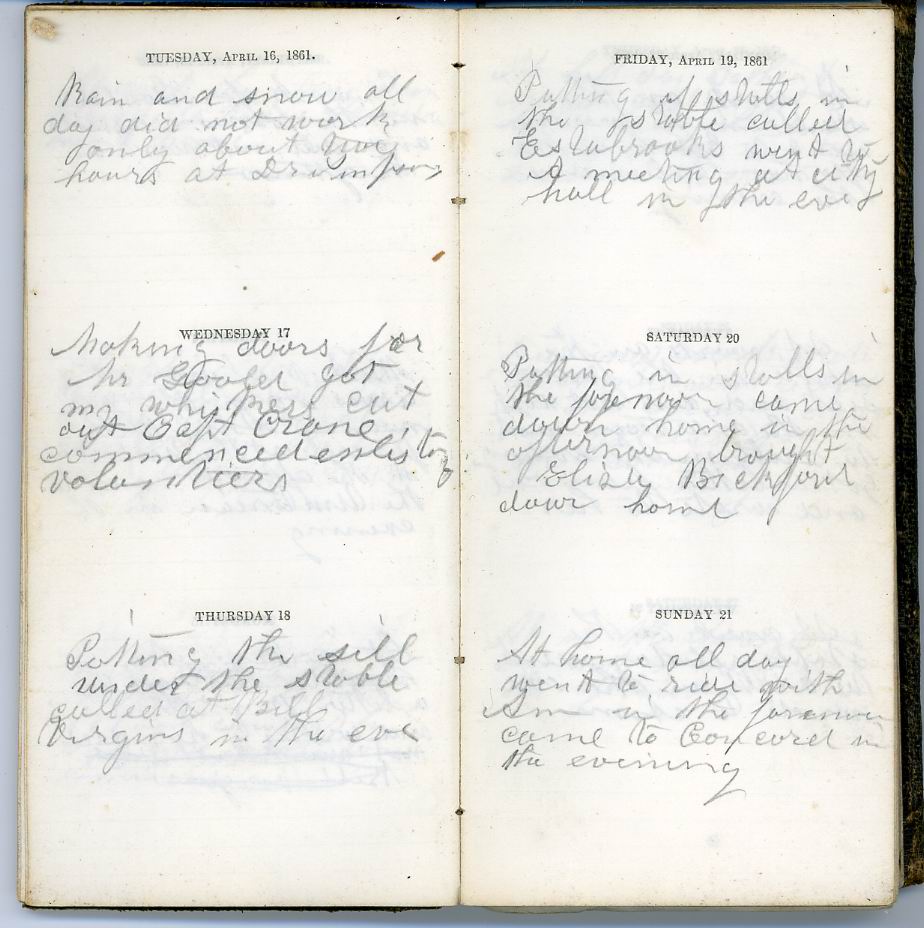 TUESDAY, APRIL 16, 1861.
Rain and snow all
day did not work
only about two
hours at
WEDNESDAY 17
Making doors for
Mr got
my whiskers cut
out Capt Crane
commenced enlisting
volunteers
THURSDAY 18
Putting the sill
under the stable
called at Bill
Virgins in the eve
FRIDAY, APRIL 19, 1861
Putting up stalls in
the stable called
Estabrooks went to
A meeting at city
hall in the eve
SATURDAY 20
Putting in stalls in
the forenoon came
down home in the
afternoon brought
Eliza Bickford
down home
SUNDAY 21
At home all day
went to ride with
in the forenoon
came to Concord in
the evening